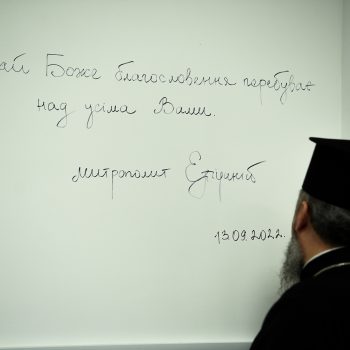 ай Боже благословення перебуває
над усіма Вами.
Митрополит Епіфаній
13.09.2022.